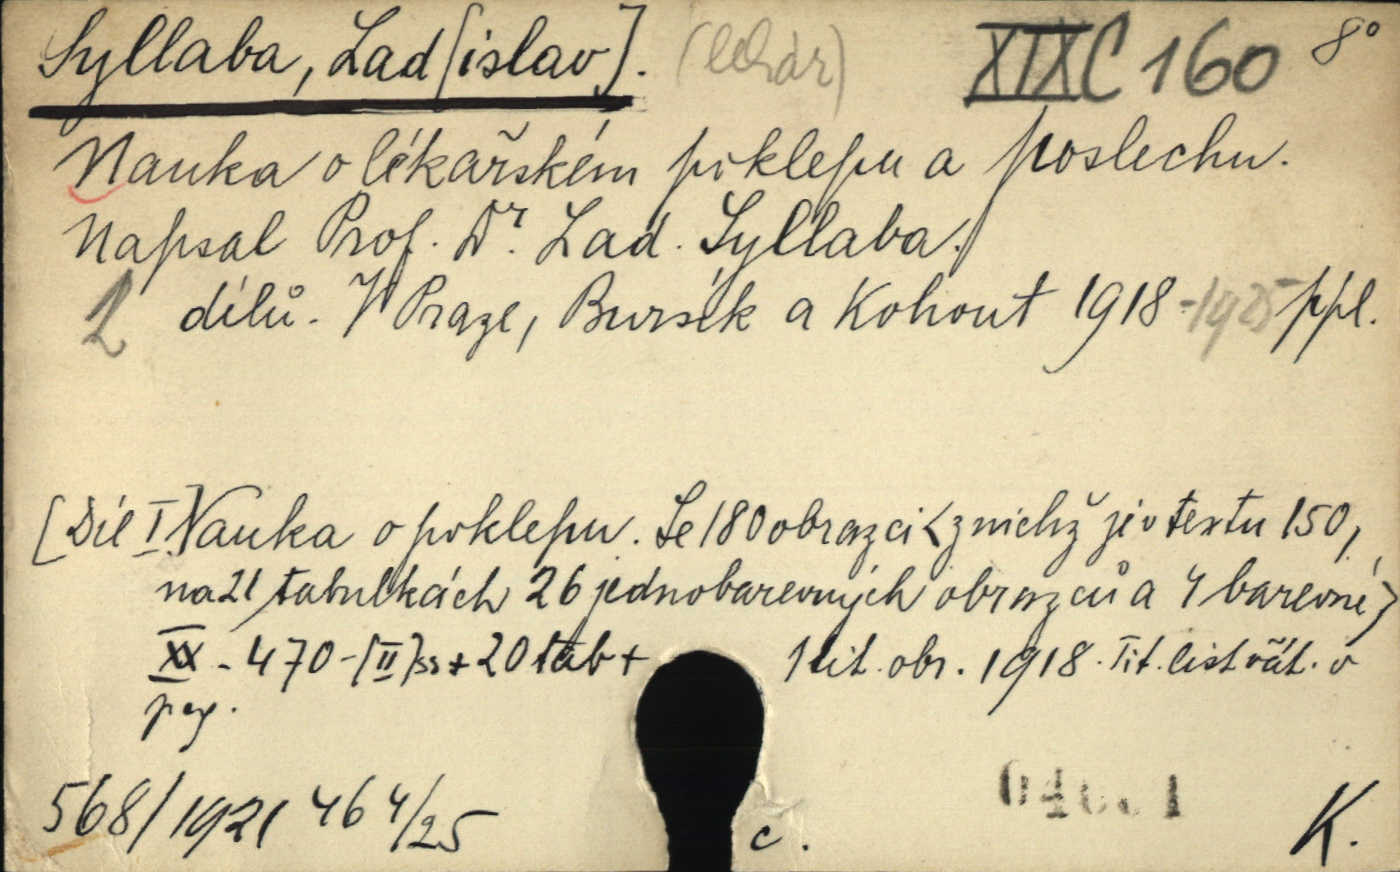 Syllaba, Lad[islav]. (lékár) XIXC 160 8°
Nauka o lékařském poklepu a poslechu.
Napsal Prof. Dr. Lad. Syllaba.
2 dílů. V Praze, Bursík a Kohout 1918-1925 ppl.
[Díl I. Nauka o poklepu. Se 180 obrazci <z nichž je v textu 150,
na 21 tabulkách 26 jednobarevných obrazců a 4 barevné>
XX - 470 - [II] ss + 20 tab + 1 lit. obr. 1918. Tit. list váz. v
pag.
568/1921 464/25 c. K.